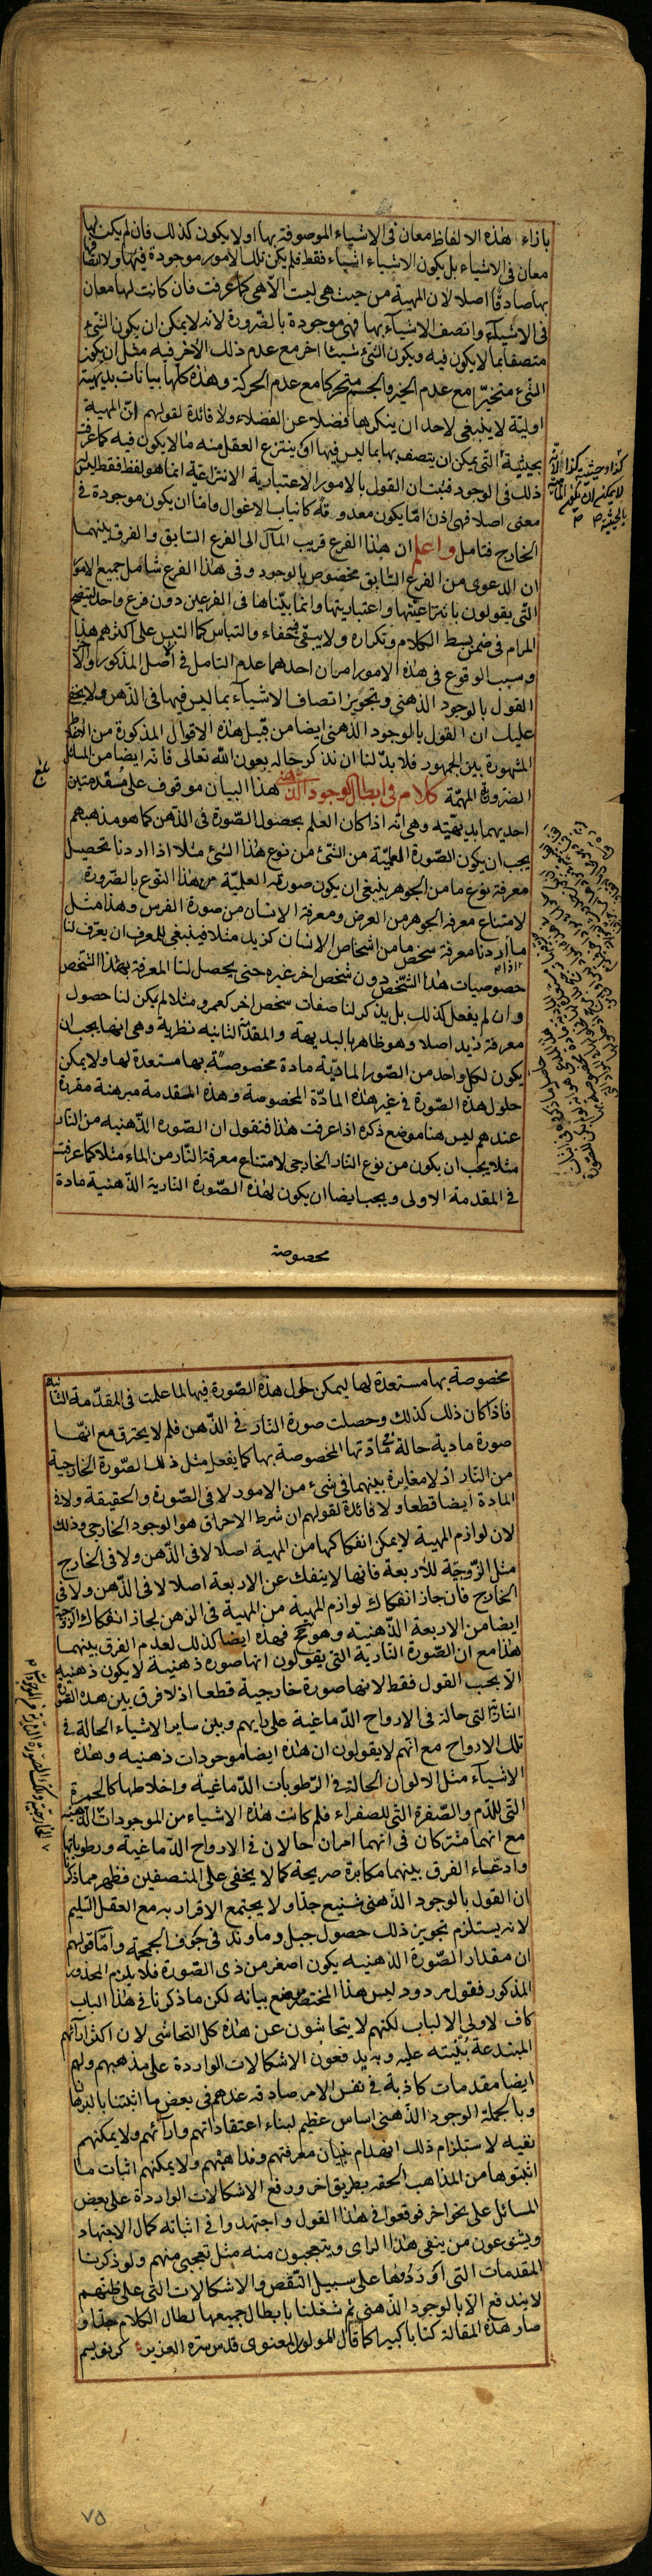 بازاء هذه الالفاظ معان فى الاشياء الموصوفة بها او لا يكون كذلك فان لم يكن لها
معان فى الاشياء بل يكون الاشياء اشياء فقط فلم يكن تلك الامور موجودة فيها ولا اتصافها
بها صادقا اصلا لان المهية من حيث هى ليست الا هى كما عرفت فان كانت لها معان
فى الاشياء واتصف الاشياء بها فهى موجودة بالضرورة لانه لا يمكن ان يكون الشئ
متصفا بما لا يكون فيه ويكون الشئ شيئا اخر مع عدم ذلك الاخر فيه مثل ان يكون
الشئ متحيزا مع عدم الحيز والجسم متحركا مع عدم الحركة وهذه كلها بيانات بديهية
اولية لا ينبغى لاحد ان ينكرها فضلا عن الفضلاء ولا فائدة لقولهم ان المهية
بحيثية التى يمكن ان يتصف بها بما ليس فيها او ينتزع العقل منه ما لا يكون فيه كما عرفت
ذلك فى الوجود فثبت ان القول بالامور الاعتبارية الانتزاعية انما هو لفظ فقط ليس
معنى اصلا فهى اذن اما يكون معدومة كانياب الاغوال واما ان يكون موجودة فى
الخارج فتامل واعلم ان هذا الفرع قريب المآل الى الفرع السابق والفرق بينهما
ان الدعوى من الفرع السابق مخصوص بالوجود وفى هذا الفرع شامل جميع الامور
التى يقولون بانتزاعيتها واعتباريتها وانما بيناها فى الفرعين دون فرع واحد ليتضح
المرام فى ضمن بسط الكلام وتكراره ولا يبقى خفاء والتباس كما التبس على اكثرهم هذا
وسبب الوقوع فى هذه الامور امران احدهما عدم التامل فى الاصل المذكور والآخر
القول بالوجود الذهنى وتجويز اتصاف الاشياء بما ليس فيها فى الذهن ولا يخفى
عليك ان القول بالوجود الذهنى ايضا من قبيل هذه الاقوال المذكورة من
المشهورة بين الجمهور فلا بد لنا ان نذكر حاله بعون الله تعالى فانه ايضا من المسائل
الضرورية المهمة كلام فى ابطال الوجود الذهنى هذا البيان موقوف على مقدمتين
احديهما بديهية وهى انه اذا كان العلم بحصول الصورة فى الذهن كما هو مذهبهم
يجب ان يكون الصورة العلمية من الشئ من نوع هذا الشئ مثلا اذا اردنا تحصيل
معرفة نوع ما من الجوهر ينبغى ان يكون صورته العلمية من هذا النوع بالضرورة
لامتناع معرفة الجوهر من العرض ومعرفة الانسان من صورة الفرس وهذا مثل
ما اذا اردنا معرفة شخص ما من اشخاص الانسان كزيد مثلا فينبغى للمعرف ان يعرف لنا
خصوصيات هذا الشخص دون شخص اخر غيره حتى يحصل لنا المعرفة بهذا الشخص
وان لم يفعل كذلك بل يذكر لنا صفات شخص اخر كعمرو مثلا لم يكن لنا حصول
معرفة زيد اصلا وهو ظاهر بالبديهة والمقدمة الثانية نظرية وهى انها يجب ان
يكون لكل واحد من الصور المادية مادة مخصوصة بها مستعدة لها ولا يمكن
حلول هذه الصورة فى غير هذه المادة المخصوصة وهذه المقدمة مبرهنة مقررة
عندهم ليس هنا موضع ذكره اذا عرفت هذا فنقول ان الصورة الذهنية من النار
مثلا يجب ان يكون من نوع النار الخارجى لامتناع معرفة النار من الماء مثلا كما عرفت
فى المقدمة الاولى ويجب ايضا ان يكون لهذه الصورة النارية الذهنية مادة
مخصوصة
مخصوصة بها مستعدة لها ليمكن حلول هذه الصورة فيها لما علمت فى المقدمة الثانية
فاذا كان ذلك كذلك وحصلت صورة النار فى الذهن فلم لا يحترق مع انها
صورة مادية حالة فى مادتها المخصوصة بها كما يفعل مثل ذلك الصورة الخارجية
من النار اذ لا مغايرة بينهما فى شئ من الامور لا فى الصورة والحقيقة ولا فى
المادة ايضا قطعا ولا فائدة لقولهم ان شرط الاحراق هو الوجود الخارجى وذلك
لان لوازم المهية لا يمكن انفكاكها من المهية اصلا لا فى الذهن ولا فى الخارج
مثل الزوجية للاربعة فانها لا ينفك عن الاربعة اصلا لا فى الذهن ولا فى
الخارج فان جاز انفكاك لوازم المهية من المهية فى الذهن لجاز انفكاك الزوجية
ايضا من الاربعة الذهنية وهو مح فهذه ايضا كذلك لعدم الفرق بينهما
هذا مع ان الصورة النارية التى يقولون انها صورة ذهنية لا يكون ذهنية
الا بحسب القول فقط لانها صورة خارجية قطعا اذ لا فرق بين هذه الصورة
النارية التى حالة فى الارواح الدماغية على رايهم وبين ساير الاشياء الحالة فى
تلك الارواح مع انهم لا يقولون ان هذه ايضا موجودات ذهنية وهذه
الاشياء مثل الالوان الحالة فى الرطوبات الدماغية واخلاطها كالحمرة
التى للدم والصفرة التى للصفراء فلم كانت هذه الاشياء من الموجودات الذهنية
مع انهما مشتركان فى انهما امران حالان فى الارواح الدماغية ورطوباتها
وادعاء الفرق بينهما مكابرة صريحة كما لا يخفى على المنصفين فظهر مما ذكرنا
ان القول بالوجود الذهنى شنيع جدا ولا يجتمع الاقرار به مع العقل السليم
لانه يستلزم تجويز ذلك حصول جبل دماوند فى جوف الجمجمة واما قولهم
ان مقدار الصورة الذهنية يكون اصغر من ذى الصورة فلا يلزم المحذور
المذكور فقول مردود ليس هذا المختصر موضع بيانه لكن ما ذكرنا فى هذا الباب
كاف لاولى الالباب لكنهم لا يتحاشون عن هذه كل التحاشى لان اكثر ارائهم
المبتدعة بنيته عليه وبه يدفعون الاشكالات الواردة على مذهبهم ولهم
ايضا مقدمات كاذبة فى نفس الامر صادقة عندهم فى بعض ما اثبتنا بالبرهان
وبالجملة الوجود الذهنى اساس عظيم لبناء اعتقاداتهم وارائهم ولا يمكنهم
نفيه لاستلزام ذلك انهدام بنيان معرفتهم ومذاهبهم ولا يمكنهم اثبات ما
اثبتوها من المذاهب الحقه بطريق اخر ودفع الاشكالات الواردة على بعض
المسائل على نحو اخر فوقعوا فى هذا القول واجتهدوا فى اثباته كمال الاجتهاد
ويشنعون من ينفى هذا الراى ويتعجبون منه مثل تعجبى منهم ولو ذكرنا
المقدمات التى اوردوها على سبيل النقض والاشكالات التى على ظنهم
لا يندفع الا بالوجود الذهنى ثم شغلنا بابطال جميعها لطال الكلام جدا و
صار هذه المقالة كتابا كبيرا كما قال المولوى المعنوى قدس سره العزيز كر نويسم
٧٥